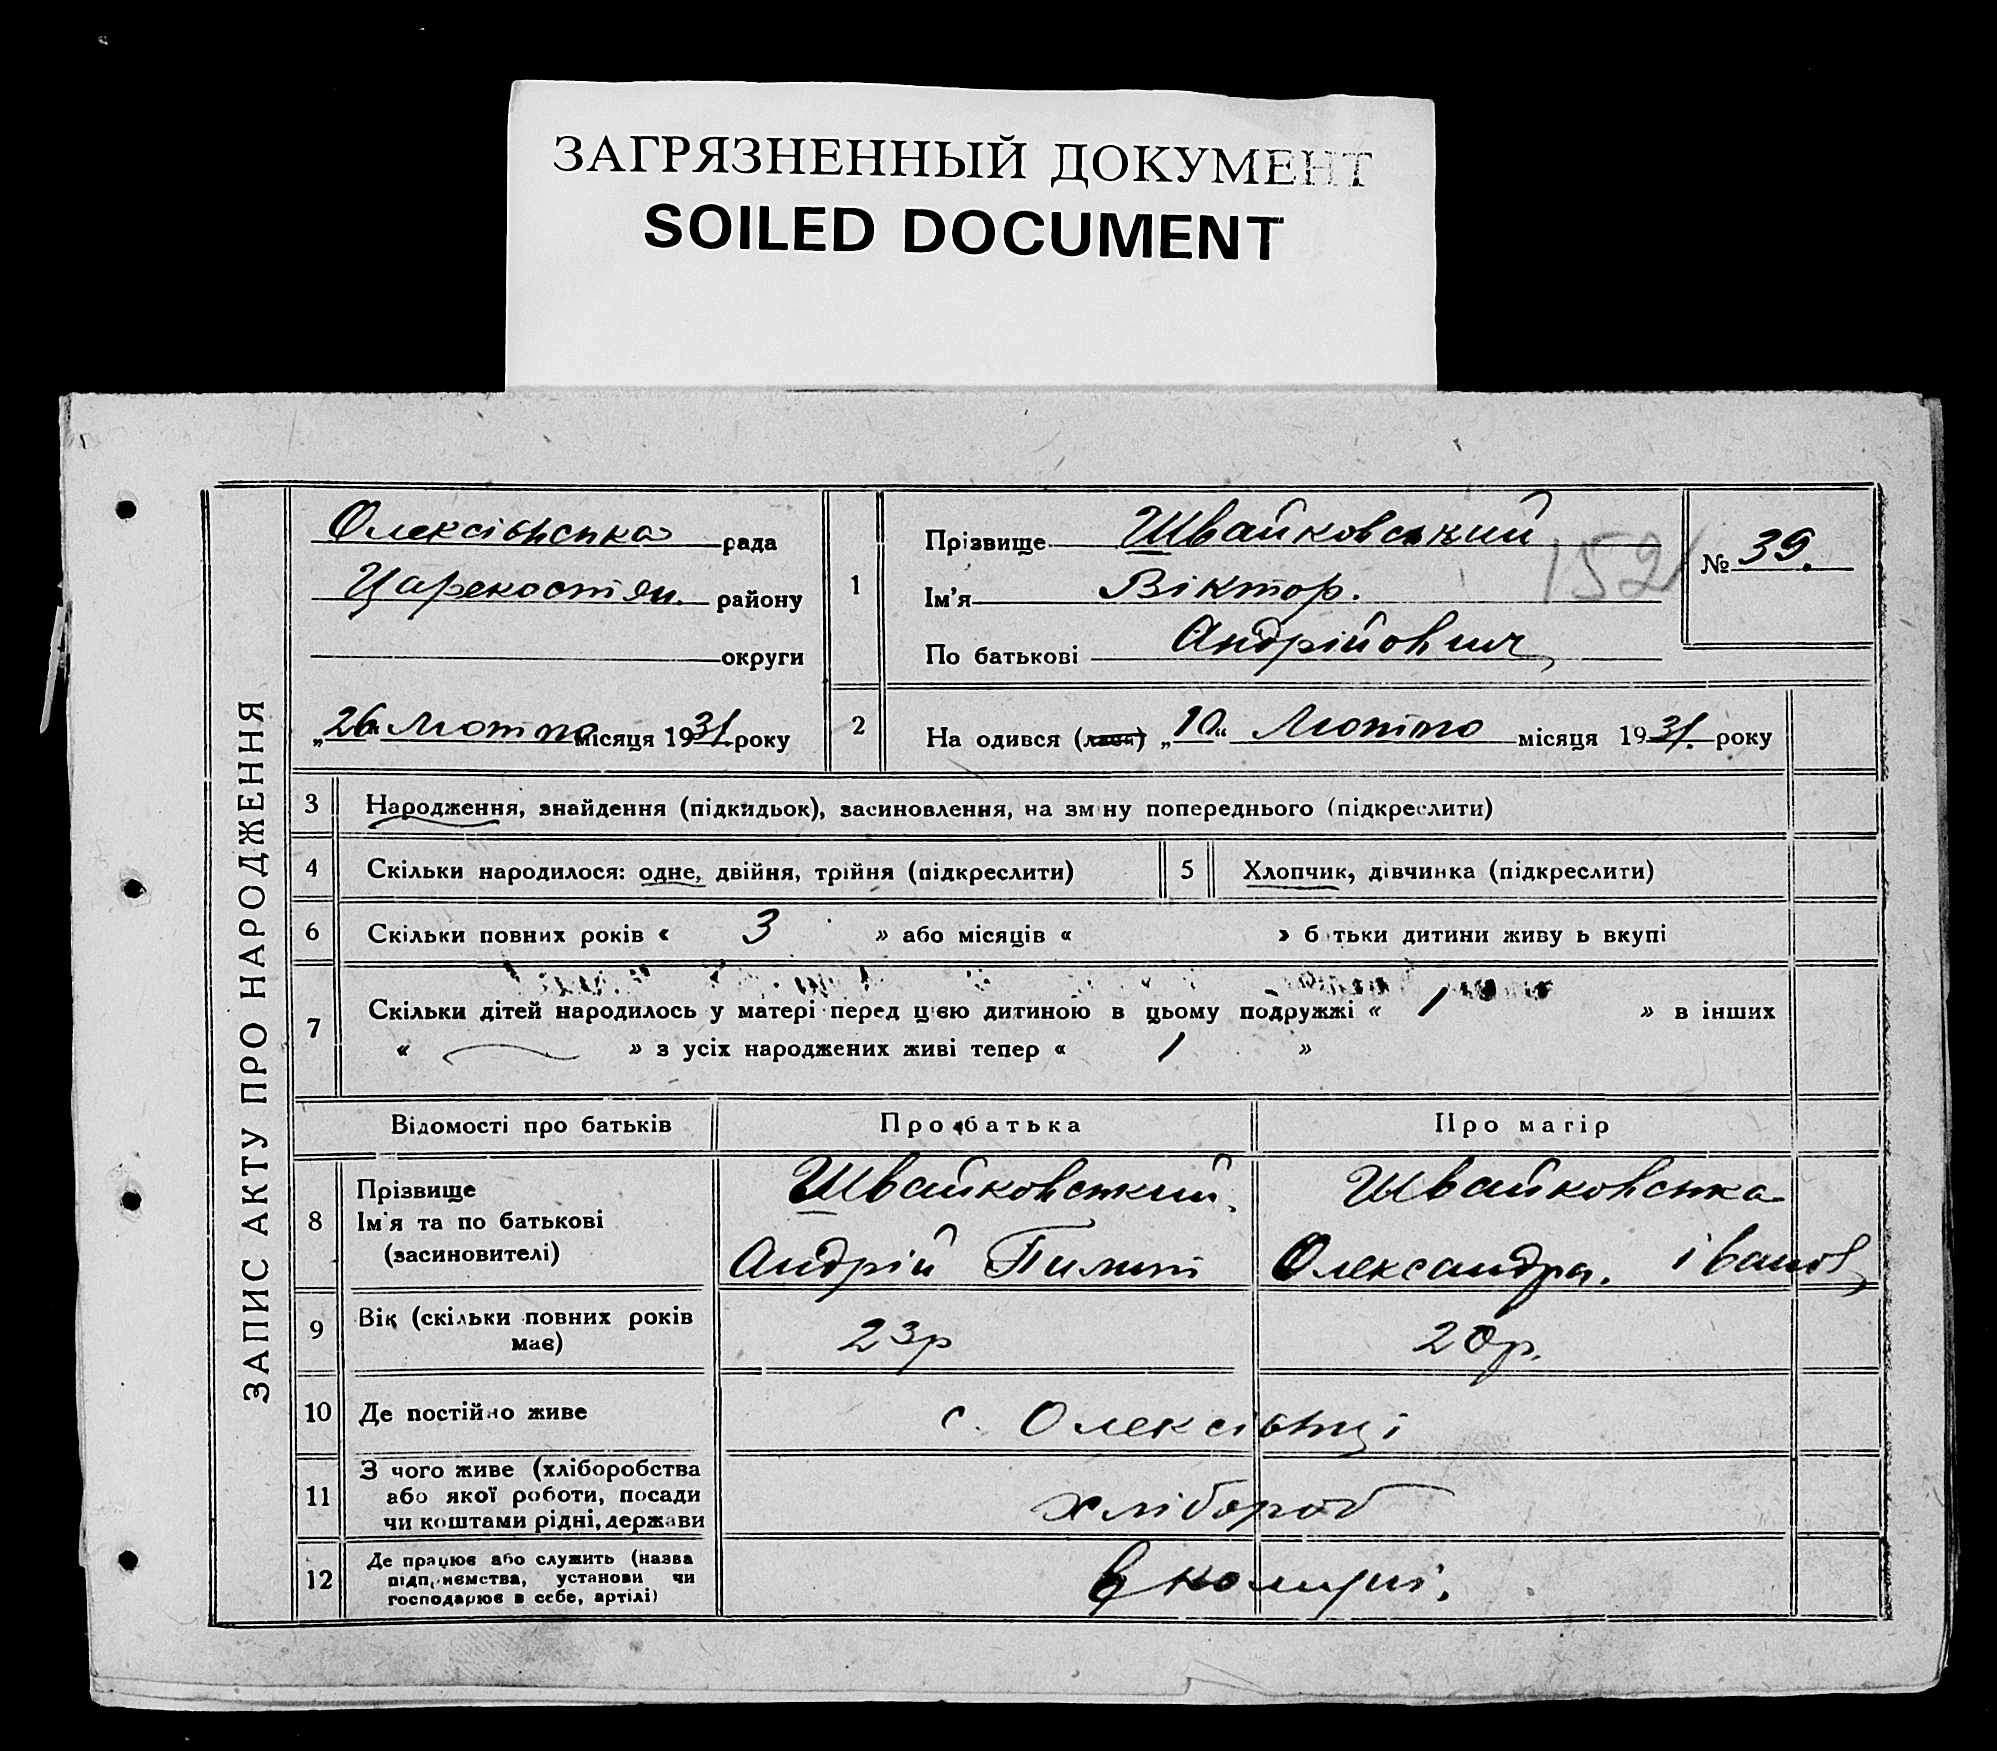 ЗАГРЯЗНЕННЫЙ ДОКУМЕНТ
SOILED DOCUMENT
ЗАПИС АКТУ ПРО НАРОДЖЕННЯ
Олексівська рада
Царекостян. району
округи
„26“ Лютого місяця 1931. року
1
Прізвище Швайковський
Ім'я Віктор.
По батькові Андрійович
152
№ 39.
2
На одився (лася) „10“ Лютого місяця 1931. року
3 Народження, знайдення (підкидьок), засиновлення, на зм ну попереднього (підкреслити)
4 Скільки народилося: одне, двійня, трійня (підкреслити)
5 Хлопчик, дівчинка (підкреслити)
6 Скільки повних років « 3 » або місяців « » б тьки дитини живу ь вкупі
7 Скільки дітей народилось у матері перед цією дитиною в цьому подружжі « 1 » в інших
« — » з усіх народжених живі тепер « 1 »
Відомості про батьків Про батька Про матір
8 Прізвище
Ім'я та по батькові
(засиновителі)
Швайковський.
Андрій Пилип
Швайковська
Олександра. Іванов
9 Вік (скільки повних років
має)
23р
20р.
10 Де постійно живе с. Олексівці
11 З чого живе (хліборобства
або якої роботи, посади
чи коштами рідні, держави
хлібороб
12 Де працює або служить (назва
підприємства, установи чи
господарює в себе, артілі)